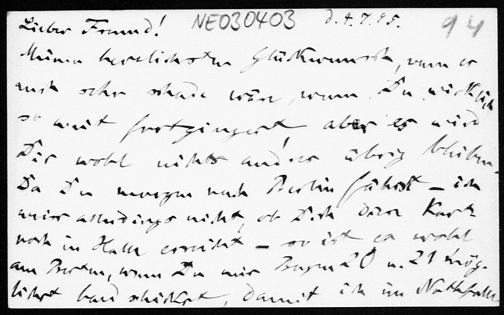 Lieber Freund! NE030403 d. 4.7.95. 94
Meinen herzlichsten Glückwunsch, wenn es
auch sehr schade wäre, wenn Du wirklich
so weit fortgingest aber es wird
Dir wohl nichts andres übrig bleiben.
Da Du morgen nach Berlin fährst – ich
weiss allerdings nicht, ob Dich diese Karte
noch in Halle erreicht – so ist es wohl
am Besten, wenn Du mir Bogen 20 u. 21 mög-
lichst bald schickst, damit ich im Nothfall